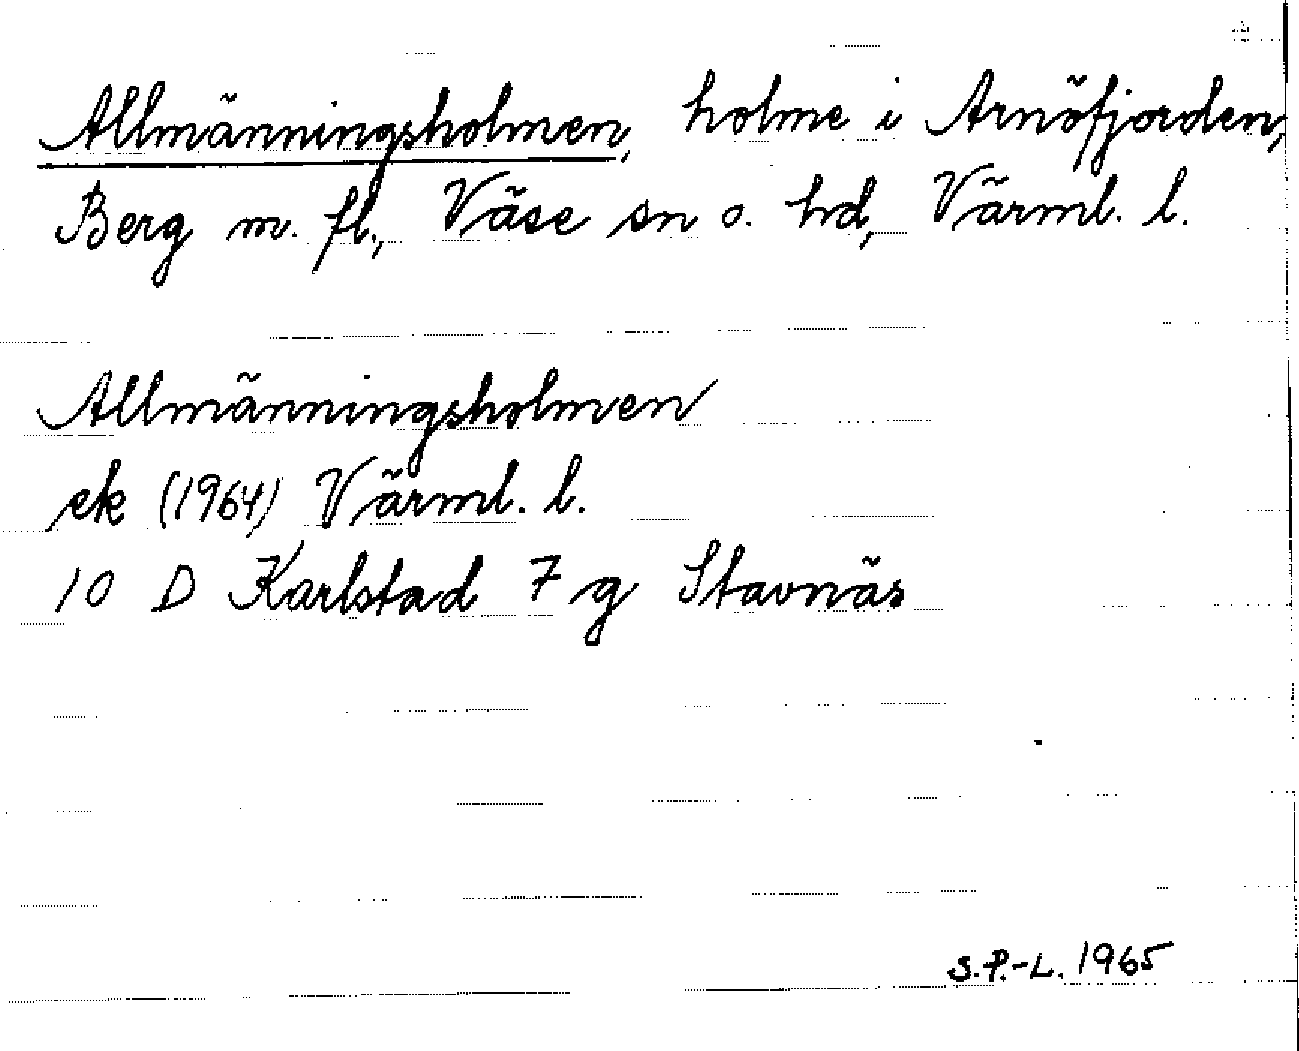 Allmänningsholmen, holme i Arnöfjorden,
Berg m. fl., Väse sn o. hd, Värml. l.
Allmänningsholmen
ek (1964) Värml. l.
10 D Karlstad 7 g Stavnäs
S.P.-L. 1965